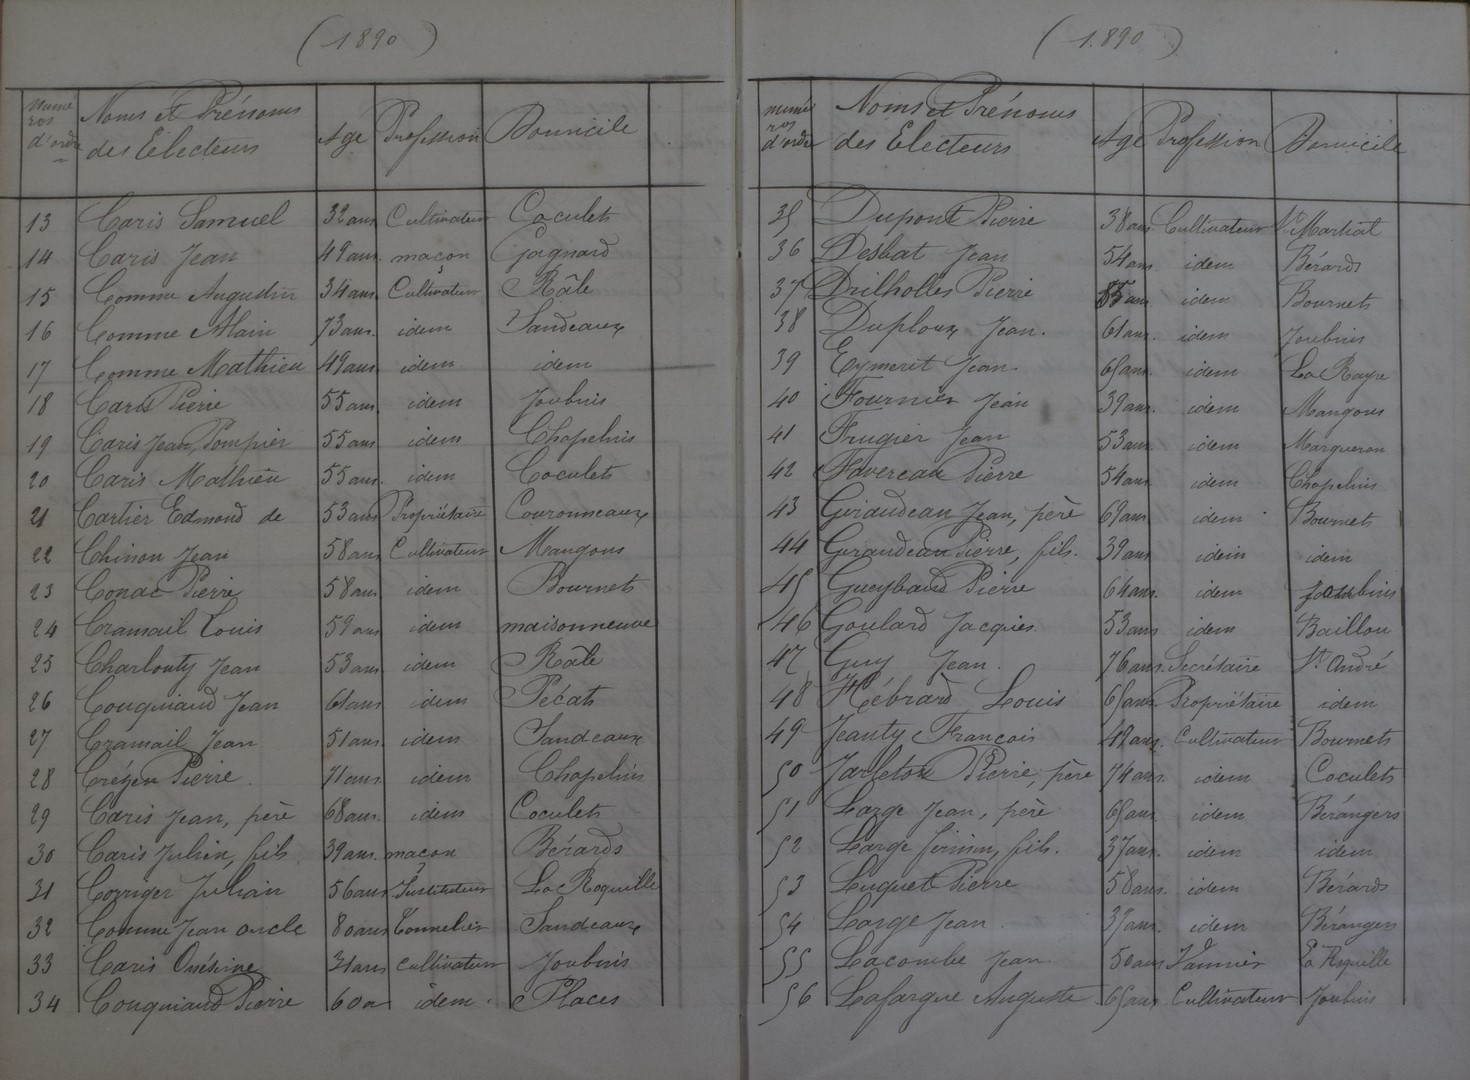 (1890)
Numé
ros
d'ordre
Noms et Prénoms
des Electeurs
Age
Profession
Domicile
13 Caris Samuel 32 ans Cultivateur Coculets
14 Caris Jean 49 ans. maçon Gagnard
15 Comme Augustin 34 ans. Cultivateur Râle
16 Comme Alain 73 ans. idem Sandeaux
17 Comme Mathieu 49 ans. idem idem
18 Caris Pierre 55 ans. idem Joubinis
19 Caris Jean, Pompier 55 ans idem Chapelnis
20 Caris Mathieu 55 ans. idem Coculets
21 Cartier Edmond de 53 ans Propriétaire Couronneaux
22 Chinon Jean 58 ans Cultivateur Mangons
23 Conac Pierre 58 ans. idem Bournets
24 Cramail Louis 59 ans idem maisonneuve
25 Charlouty Jean 53 ans. idem Râle
26 Couquiaud Jean 61 ans idem Pécats
27 Cramail Jean 51 ans. idem Sandeaux
28 Crézen Pierre 71 ans. idem Chapelnis
29 Caris Jean, père 68 ans. idem Coculets
30 Caris Julien, fils. 39 ans. maçon Bérards
31 Julien 56 ans Instituteur La Roquille
32 Comme Jean oncle 80 ans Tonnelier Sandeaux
33 Caris Onésime 31 ans cultivateur Joubinis
34 Couquiaud Pierre 60 a idem. Places
(1.890)
numé
ros
d'ordre
Noms et Prénoms
des Electeurs
Age
Profession
Domicile
35 Dupont Pierre 38 ans Cultivateur St Martial
36 Desbat Jean 54 ans idem Bérards
37 Drilholles Pierre 55 ans idem Bournets
38 Duploux Jean. 61 ans. idem Joubinis
39 Eymerit Jean. 65 ans. idem La Raye
40 Fournier Jean 39 ans. idem Mangons
41 Frugier Jean 53 ans. idem Margueron
42 Favereau Pierre 54 ans. idem Chapelnis
43 Giraudeau Jean, père 69 ans. idem Bournets
44 Giraudeau Pierre, fils. 39 ans. idem idem
45 Gueybaud Pierre 64 ans. idem
46 Goulard Jacques 53 ans idem Baillou
47 Guy Jean. 76 ans. Secrétaire St André
48 Hébrard Louis 65 ans. Propriétaire idem
49 Jeanty François 48 ans. Cultivateur Bournets
50 Jarleton Pierre, père 74 ans. idem Coculets
51 Large Jean, père 65 ans. idem Bérangers
52 Large firmin, fils. 37 ans. idem idem
53 Luquet Pierre 58 ans. idem Bérards
54 Large Jean 35 ans. idem Bérangers
55 Lacombe Jean 50 ans Vannier La Roquille
56 Lafargue Auguste 65 ans Cultivateur Joubinis